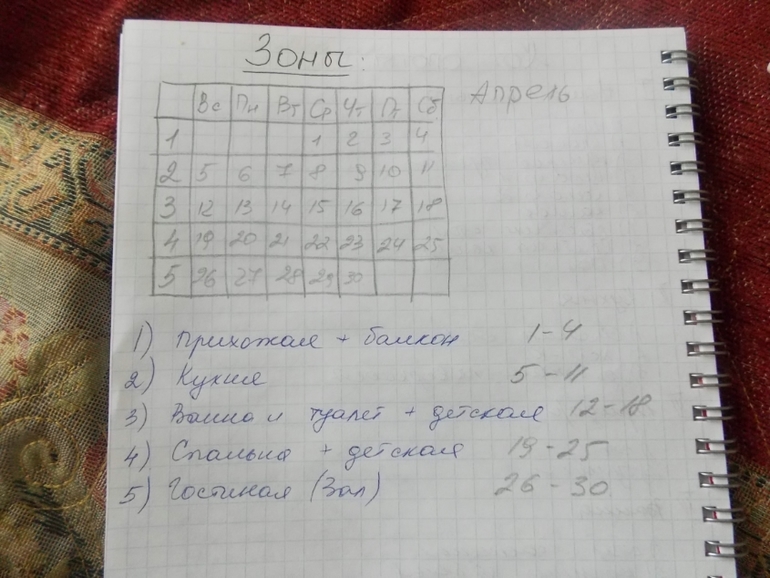 Зоны:
Апрель
Вс Пн Вт Ср Чт Пт Сб
1 1 2 3 4
2 5 6 7 8 9 10 11
3 12 13 14 15 16 17 18
4 19 20 21 22 23 24 25
5 26 27 28 29 30
1) Прихожая + балкон 1-4
2) Кухня 5-11
3) Ванна и туалет + детская 12-18
4) Спальня + детская 19-25
5) Гостиная (Зал) 26-30